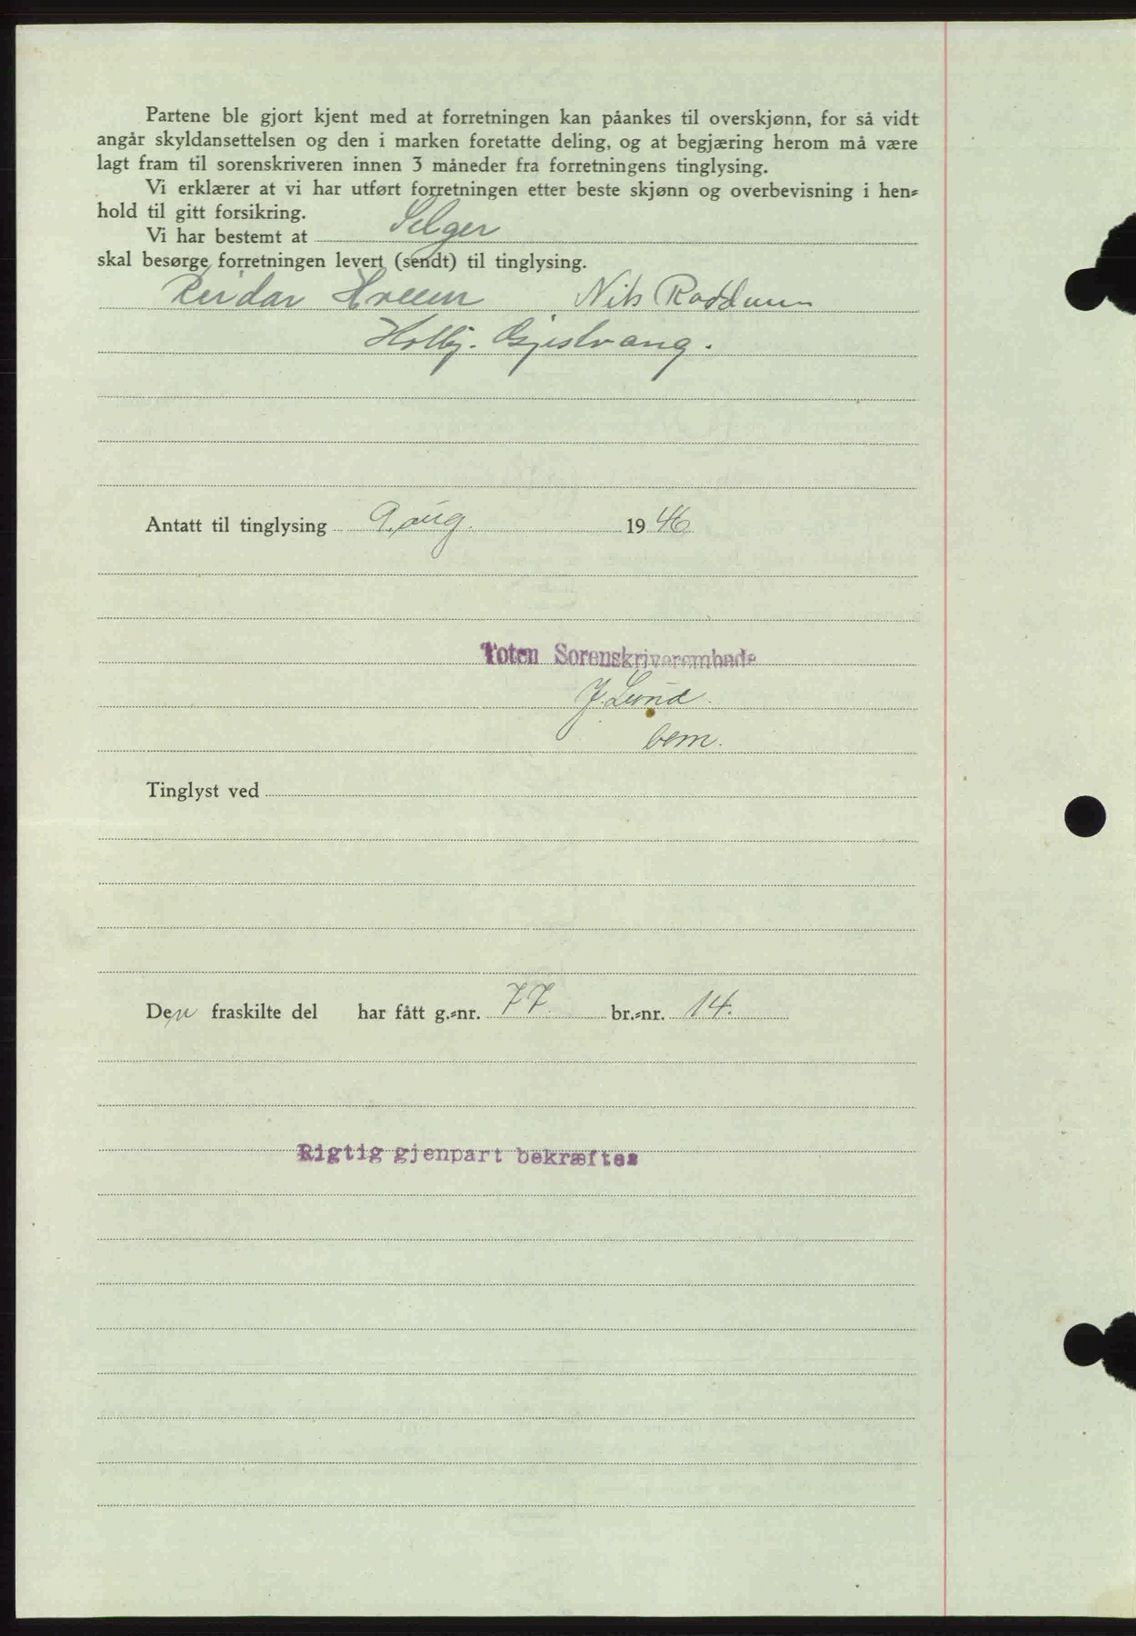 Partene ble gjort kjent med at forretningen kan påankes til overskjønn, for så vidt
angår skyldansettelsen og den i marken foretatte deling, og at begjæring herom må være
lagt fram til sorenskriveren innen 3 måneder fra forretningens tinglysing.
Vi erklærer at vi har utført forretningen etter beste skjønn og overbevisning i hen-
hold til gitt forsikring.
Vi har bestemt at Selger
skal besørge forretningen levert (sendt) til tinglysing.
Reidar Hveem Nils Roddum
Gjestvang.
Antatt til tinglysing 9. aug. 1946
Toten Sorenskriverembede
J. Lund
bem.
Tinglyst ved
Den fraskilte del har fått g.-nr. 77 br.-nr. 14.
Rigtig gjenpart bekræftes